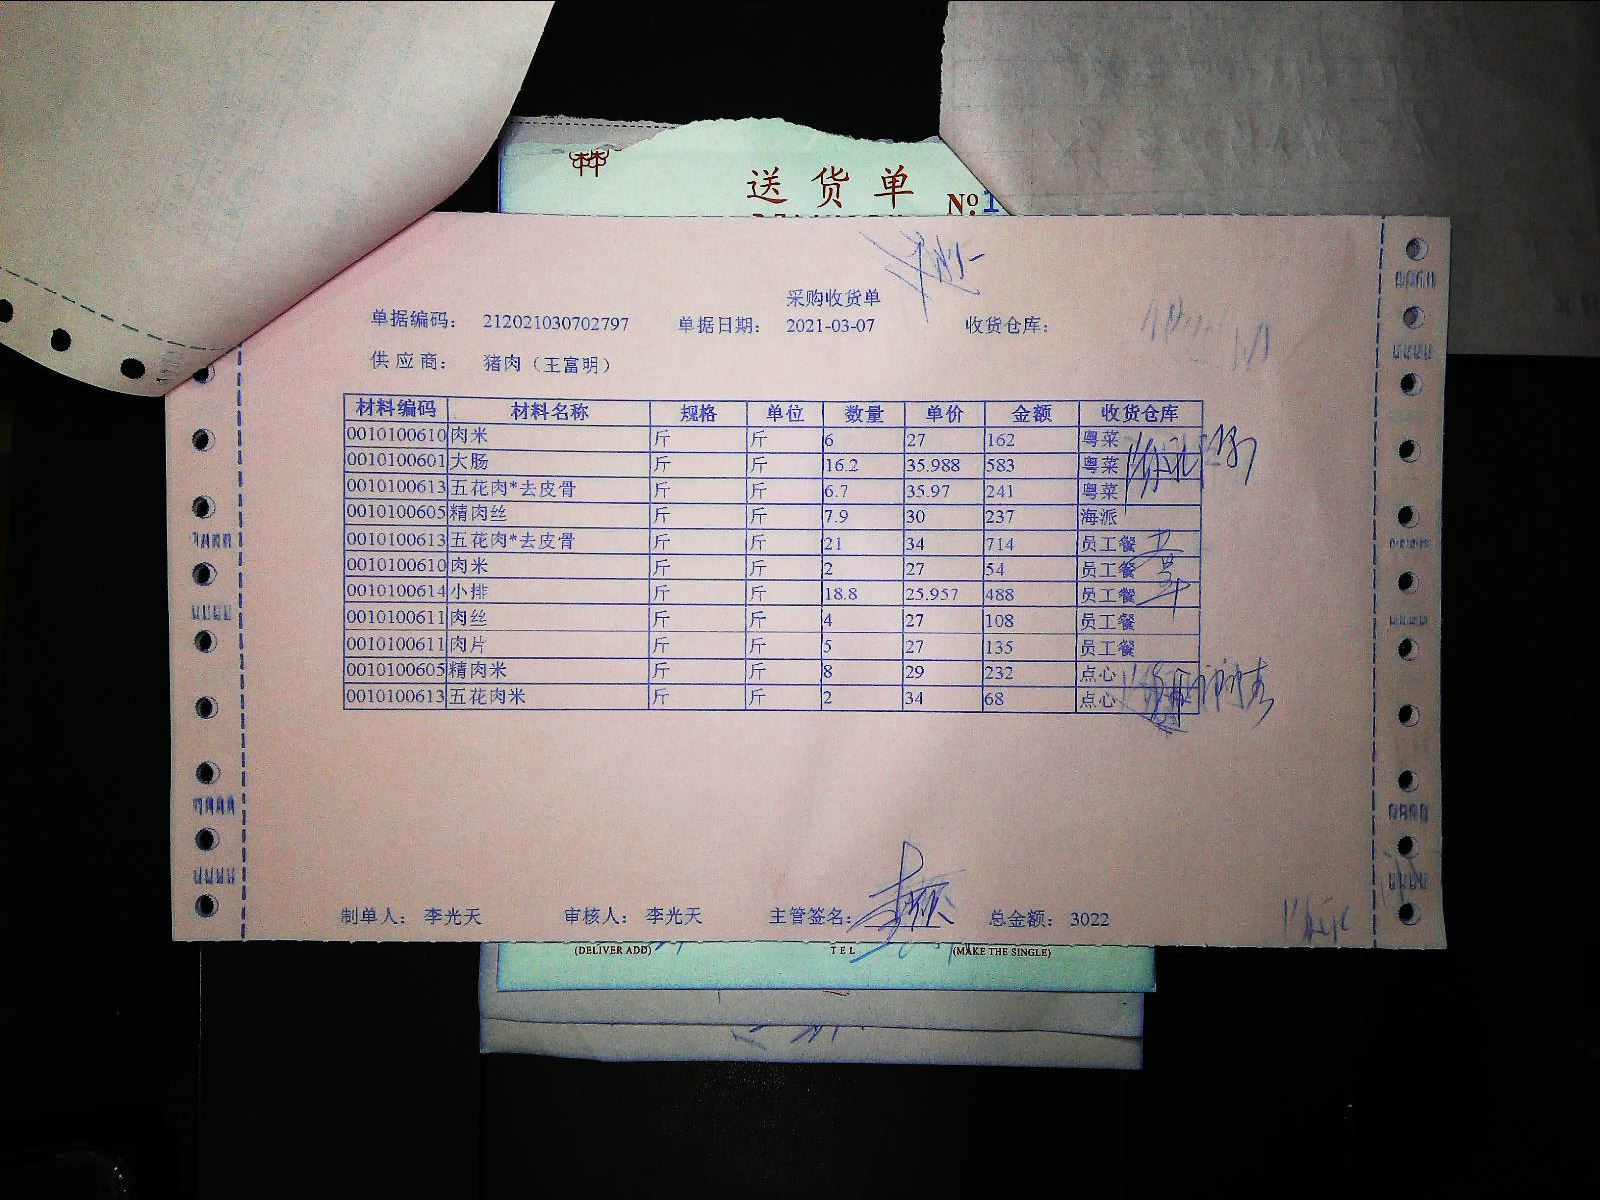 送货单
No.
采购收货单
单据编码： 212021030702797 单据日期： 2021-03-07 收货仓库：
供应商： 猪肉（王富明）
材料编码 材料名称 规格 单位 数量 单价 金额 收货仓库
0010100610 肉米 斤 斤 6 27 162 粤菜
0010100601 大肠 斤 斤 16.2 35.988 583 粤菜
0010100613 五花肉*去皮骨 斤 斤 6.7 35.97 241 粤菜
0010100605 精肉丝 斤 斤 7.9 30 237 海派
0010100613 五花肉*去皮骨 斤 斤 21 34 714 员工餐
0010100610 肉米 斤 斤 2 27 54 员工餐
0010100614 小排 斤 斤 18.8 25.957 488 员工餐
0010100611 肉丝 斤 斤 4 27 108 员工餐
0010100611 肉片 斤 斤 5 27 135 员工餐
0010100605 精肉米 斤 斤 8 29 232 点心
0010100613 五花肉米 斤 斤 2 34 68 点心
制单人： 李光天 审核人： 李光天 主管签名： 总金额： 3022
(DELIVER ADD) TEL (MAKE THE SINGLE)